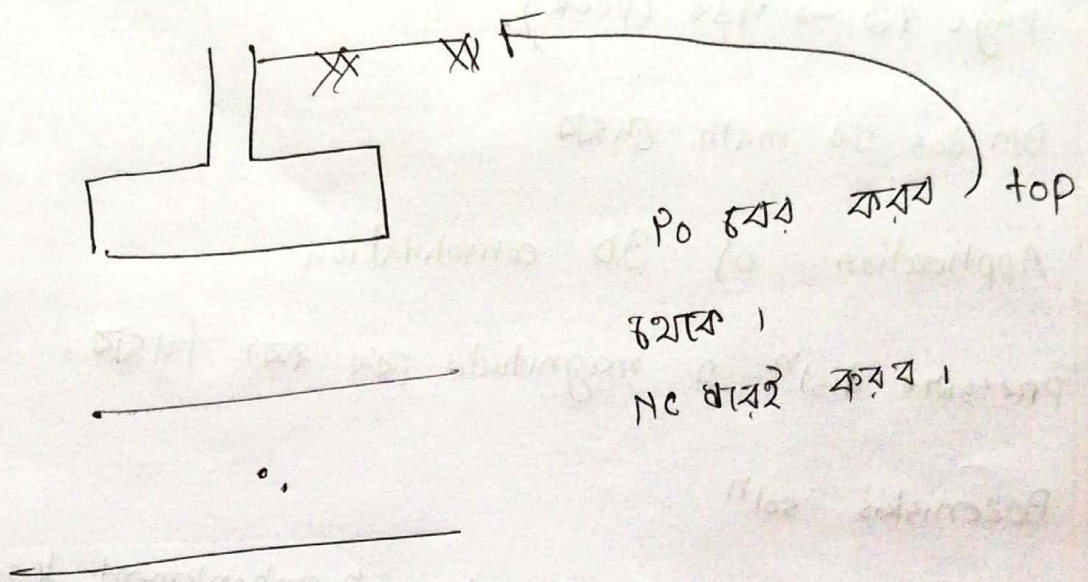 Po বের করব top
থেকে।
NC ধরেই করব।